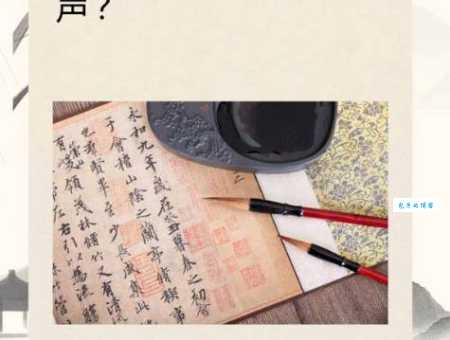 声？
永和九年歲在癸丑暮春之初會
于會稽山陰之蘭亭脩稧事
也羣賢畢至少長咸集此
領茂林脩竹又有清流
左右引以為流觴